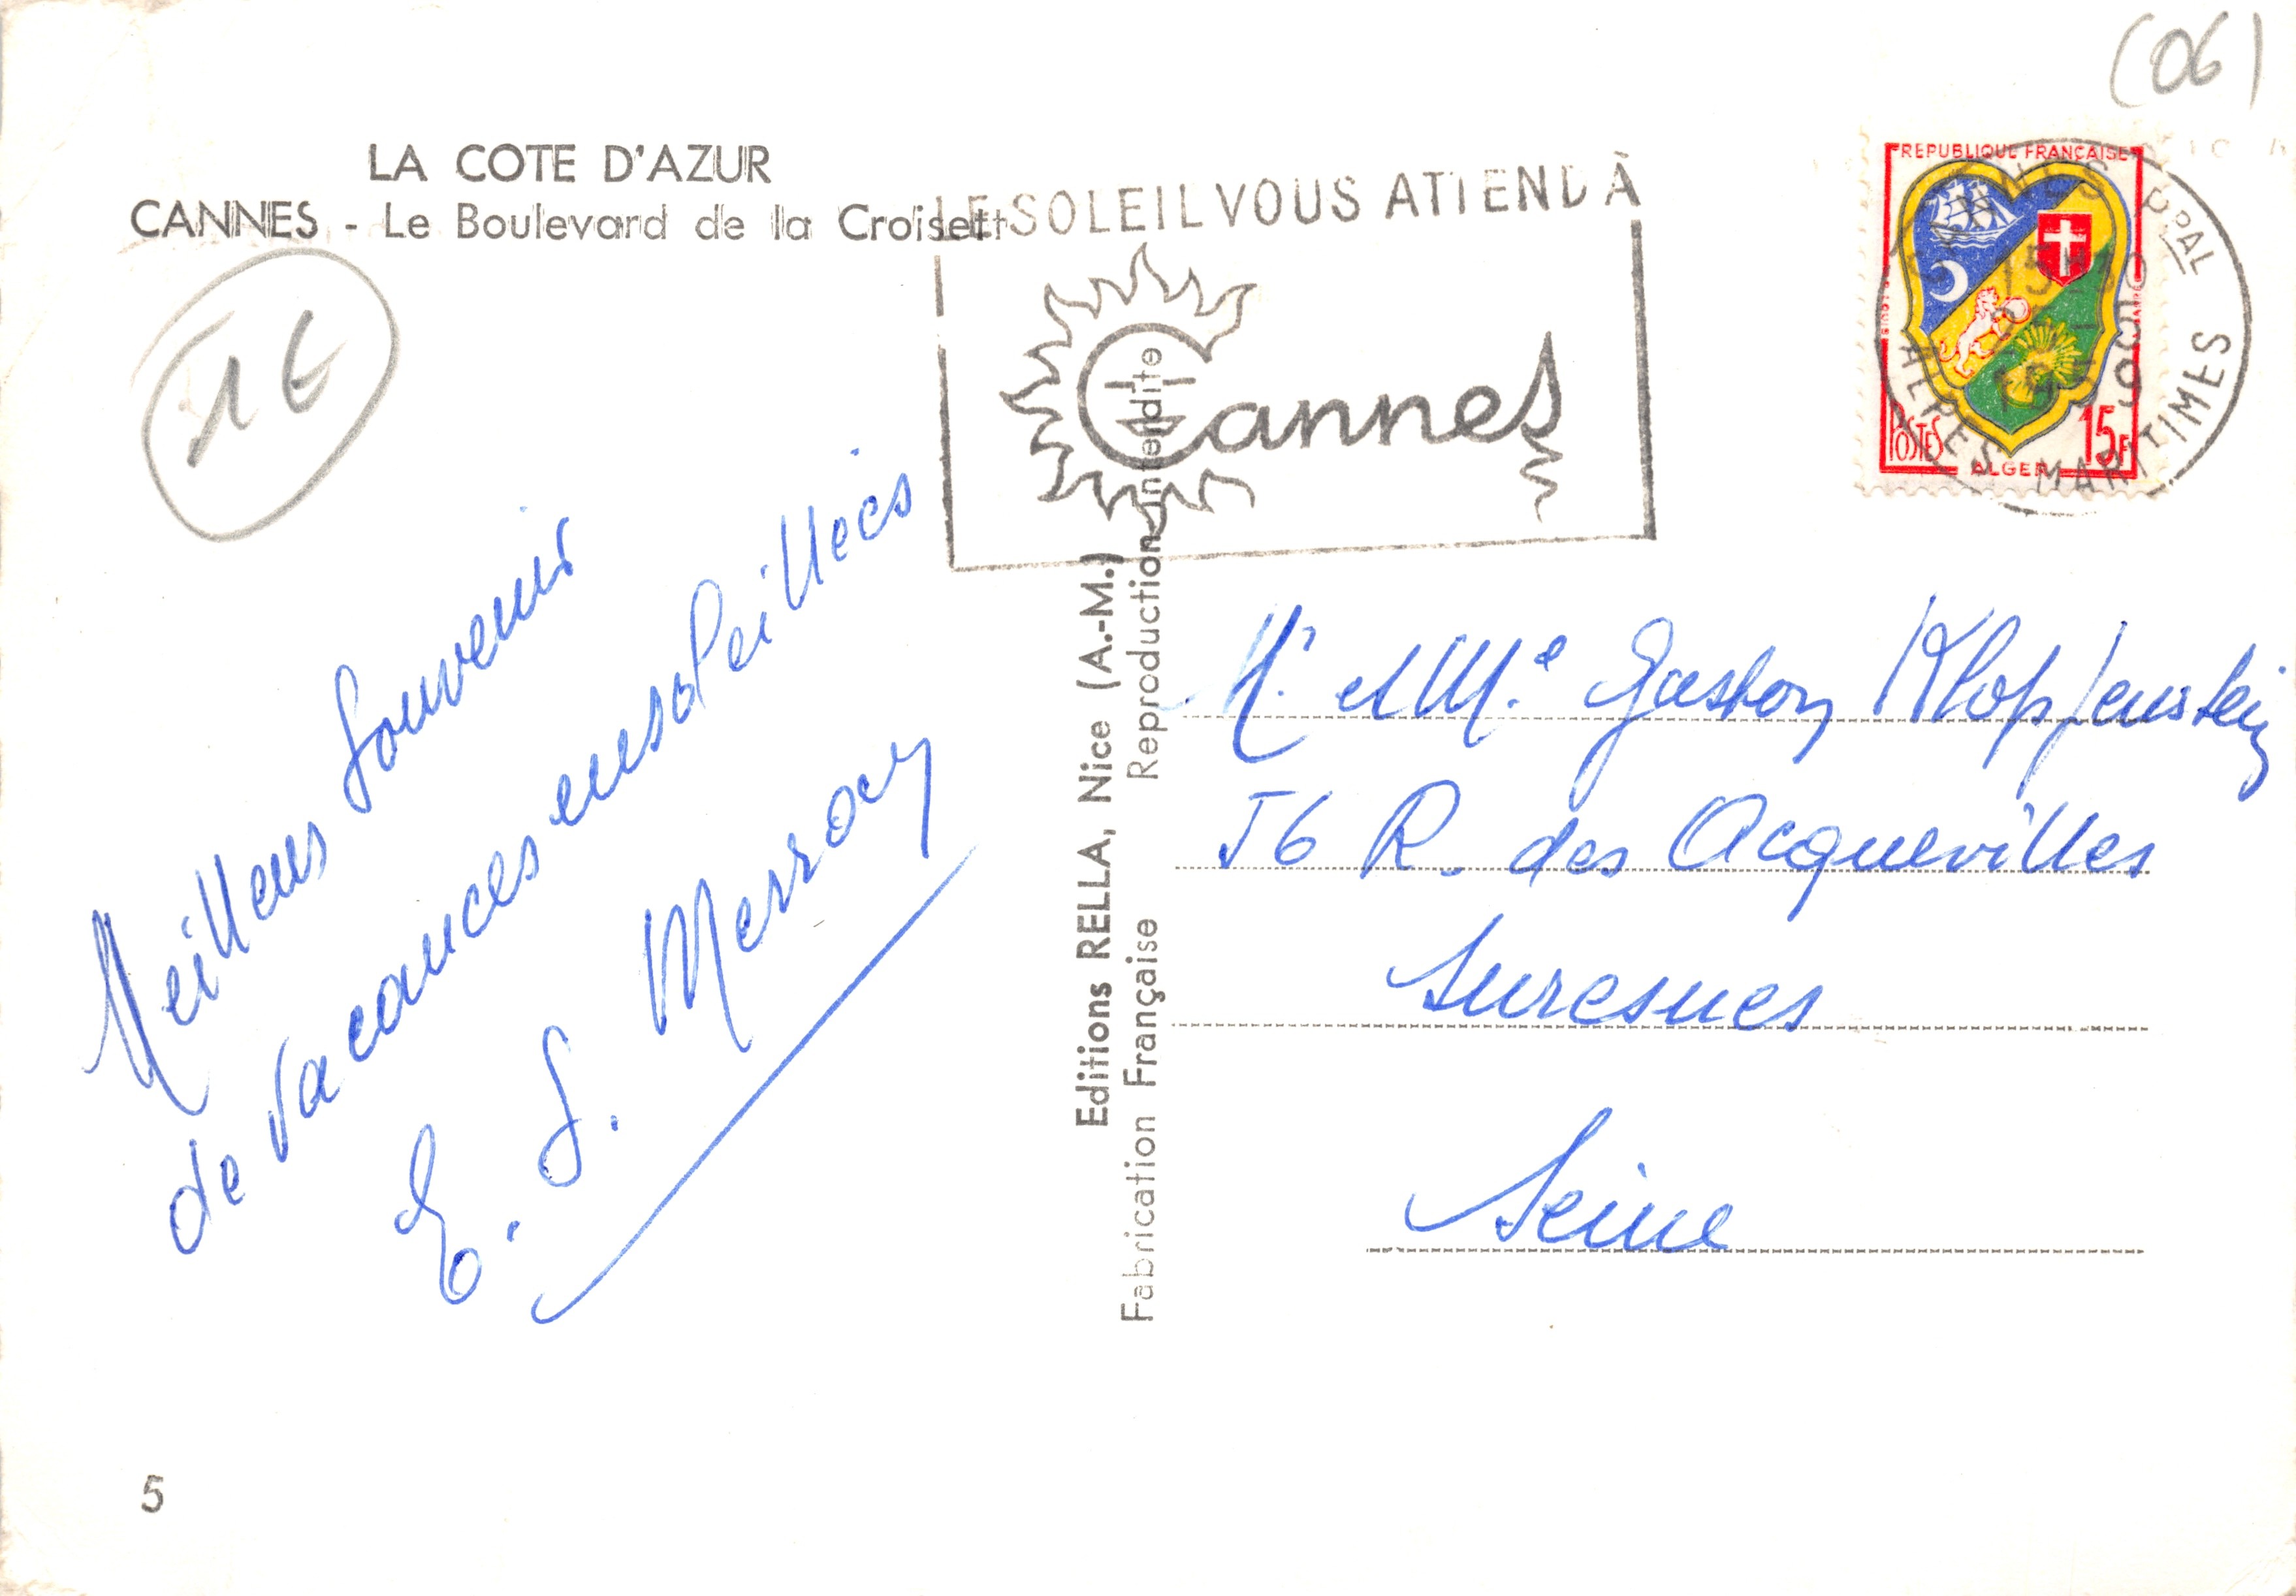 (06)
LA COTE D'AZUR
CANNES - Le Boulevard de la Croisett
1€
LE SOLEIL VOUS ATTEND À
Cannes
REPUBLIQUE FRANÇAISE
POSTES
ALGER
15F
CANNES PPAL
15H30
1959
ALPES MARITIMES
Meilleurs souvenirs
de vacances ensoleillées
E. S. Merroay
Editions RELLA, Nice (A.-M.)
Fabrication Française Reproduction interdite
Mr et Me Gaston Klopfenstein
56 R. des Acquevilles
Suresnes
Seine
5